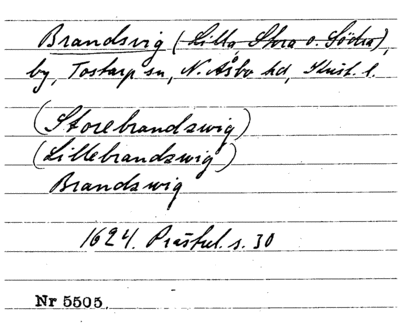 Brandsvig (Lilla, Stora o. Södra),
by, Tostarp sn, N. Åsbo hd, Krist. l.
(Storebrandzwig)
(Lillebrandzwig)
Brandzwig
1624. Präststul. s. 30
Nr 5505.